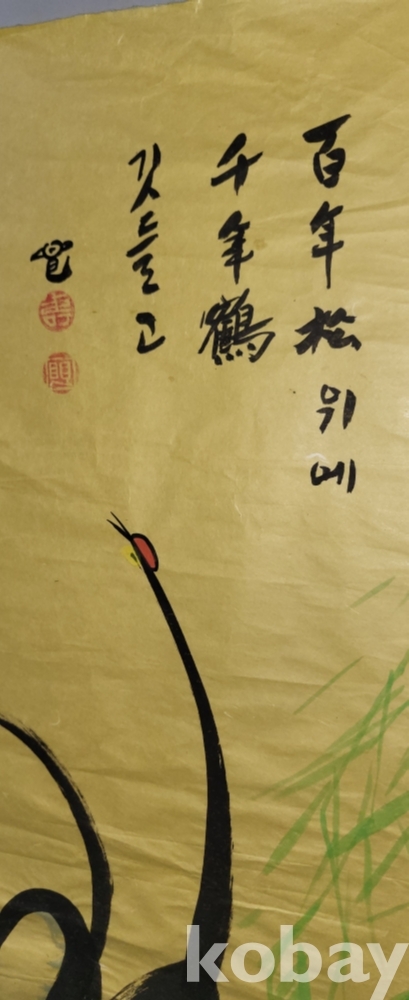 百年松위에
千年鶴
깃들고
kobay